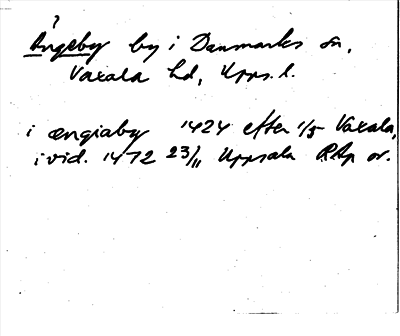 ?
Ängeby by i Danmarks sn,
Vaxala hd, Upps. l.
i ængiaby 1424 efter 1/5 Vaxala,
i vid. 1472 23/11 Uppsala RAp or.